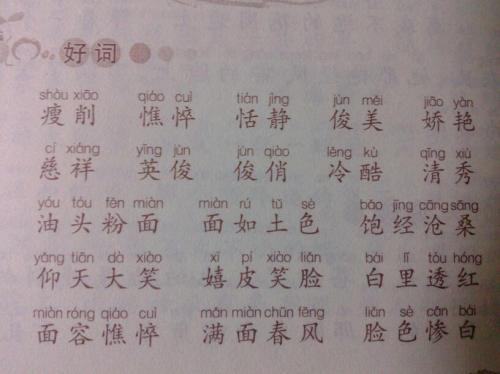 好词
shòu xiāo qiáo cuì tián jìng jùn měi jiāo yàn
瘦削 憔悴 恬静 俊美 娇艳
cí xiáng yīng jùn jùn qiào lěng kù qīng xiù
慈祥 英俊 俊俏 冷酷 清秀
yóu tóu fěn miàn miàn rú tǔ sè bǎo jīng cāng sāng
油头粉面 面如土色 饱经沧桑
yǎng tiān dà xiào xī pí xiào liǎn bái lǐ tòu hóng
仰天大笑 嬉皮笑脸 白里透红
miàn róng qiáo cuì mǎn miàn chūn fēng liǎn sè cǎn bái
面容憔悴 满面春风 脸色惨白